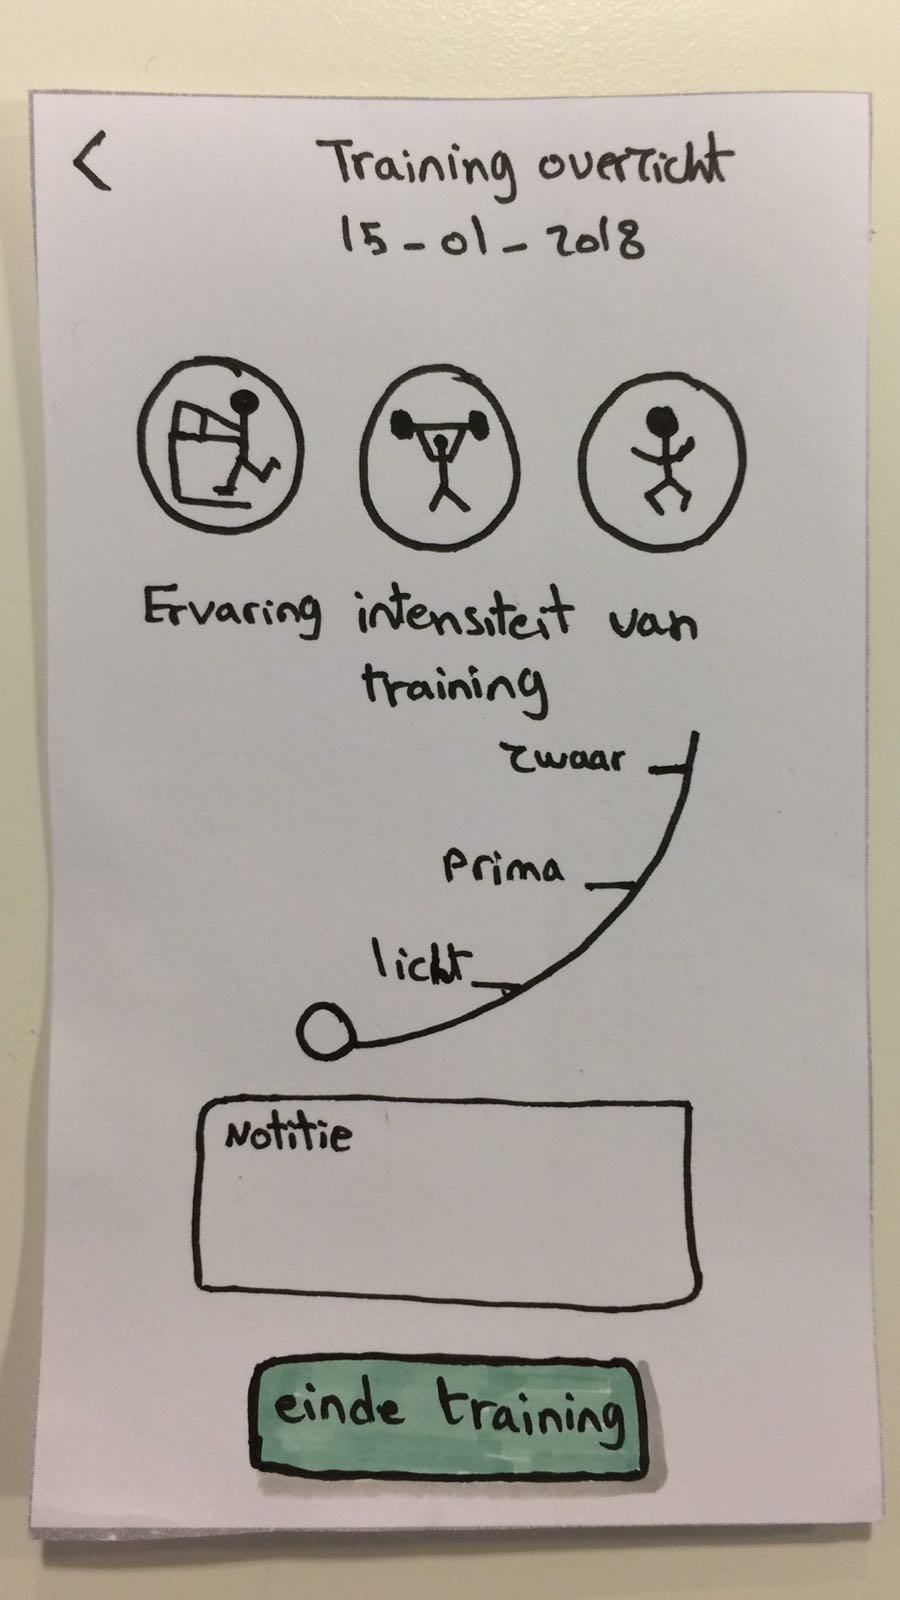 Training overzicht
15-01-2018
Ervaring intensiteit van
training
zwaar
Prima
licht
Notitie
einde training